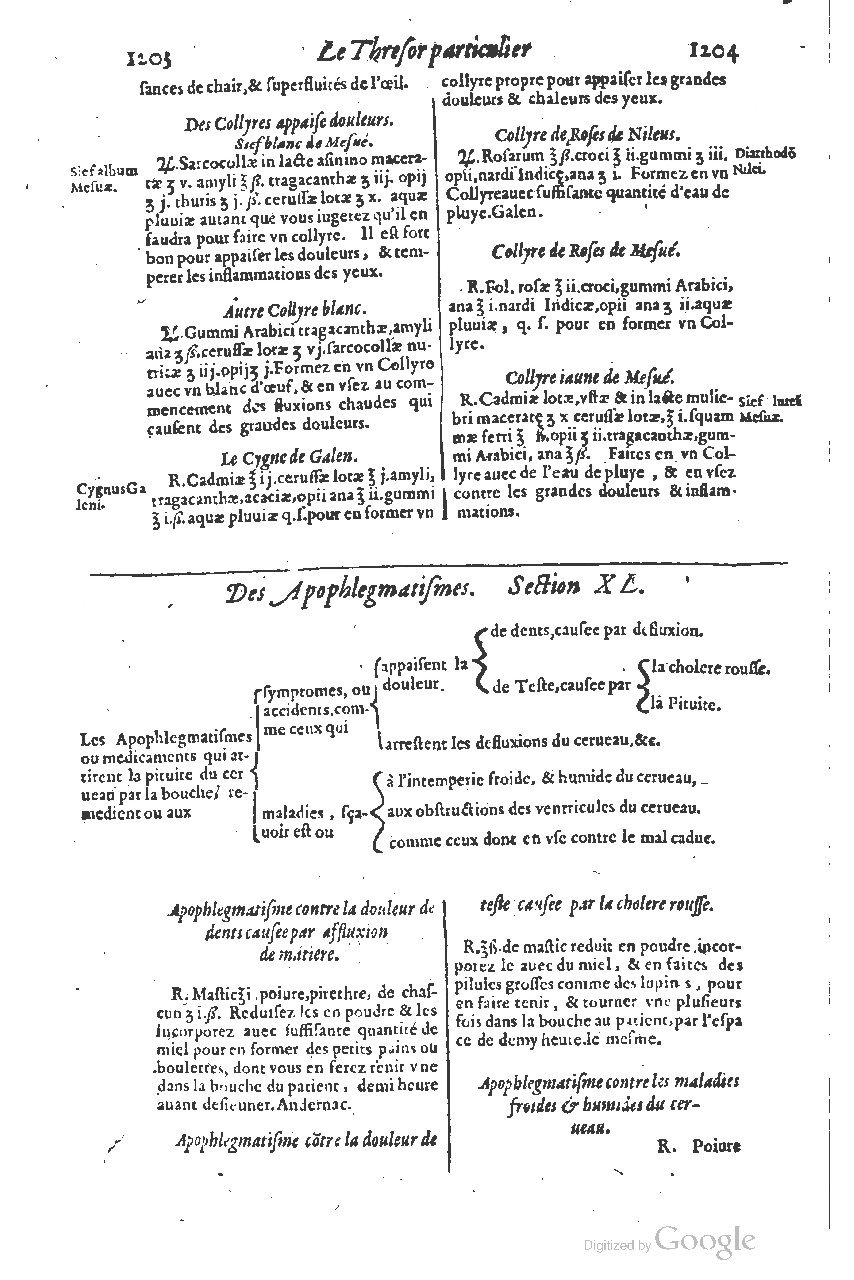 1203 Le Threſor particulier 1204
ſances de chair,& ſuperfluités de l'œil.
Des Collyres appaiſe douleurs.
Sief blanc de Meſué.
Sief album
Meſuæ.
♃.Sarcocollæ in lacte aſinino macera-
tæ ʒ v. amyli ℥ ß. tragacanthæ ʒ iij. opij
ʒ j. thuris ʒ j. ß. ceruſſæ lotæ ʒ x. aquæ
pluuiæ autant que vous iugerez qu'il en
faudra pour faire vn collyre. Il eſt fort
bon pour appaiſer les douleurs, & tem-
perer les inflammations des yeux.
Autre Collyre blanc.
♃.Gummi Arabici tragacanthæ,amyli
ana ʒ ß.ceruſſæ lotæ ʒ vj.ſarcocollæ nu-
tritæ ʒ iij.opij ʒ j.Formez en vn Collyre
auec vn blanc d'œuf, & en vſez au com-
mencement des fluxions chaudes qui
cauſent des graudes douleurs.
Le Cygne de Galen.
Cygnus Ga
leni.
R.Cadmiæ ℥ ij.ceruſſæ lotæ ℥ j.amyli,
tragacanthæ,acaciæ,opii ana ℥ ii.gummi
℥ i.ß. aquæ pluuiæ q.ſ.pour en former vn
collyre propre pour appaiſer les grandes
douleurs & chaleurs des yeux.
Collyre de Roſes de Nileus.
♃.Roſarum ℥ ß.croci ℥ ii.gummi ʒ iii.
opii,nardi Indicę,ana ʒ i. Formez en vn
Collyre auec ſuffiſante quantité d'eau de
pluye.Galen.
Diarrhodō
Nulei.
Collyre de Roſes de Meſué.
R.Fol. roſæ ℥ ii.croci,gummi Arabici,
ana ℥ i.nardi Indicæ,opii ana ʒ ii.aquæ
pluuiæ, q. ſ. pour en former vn Col-
lyre.
Collyre iaune de Meſué.
R.Cadmiæ lotæ,vſtæ & in lacte mulie-
bri maceratę ʒ x ceruſſæ lotæ,℥ i.ſquam
mæ ferri ℥ ß.opii ʒ ii.tragacanthæ,gum-
mi Arabici, ana ℥ ß. Faites en vn Col-
lyre auec de l'eau de pluye, & en vſez
contre les grandes douleurs & inflam-
mations.
Sief
Meſuæ.
Des Apophlegmatiſmes. Section XL.
Les Apophlegmatiſmes
ou medicaments qui at-
tirent la pituite du cer
ueau par la bouche, re-
medient ou aux
ſymptomes, ou
accidents,com-
me ceux qui
appaiſent la
douleur.
de dents,cauſee par defluxion.
de Teſte,cauſee par
la cholere rouſſe.
la Pituite.
arreſtent les defluxions du cerueau,&c.
maladies, ſça-
uoir eſt ou
à l'intemperie froide, & humide du cerueau,
aux obſtructions des ventricules du cerueau.
comme ceux dont en vſe contre le mal caduc.
Apophlegmatiſme contre la douleur de
dents cauſee par affluxion
de matiere.
R. Maſtic ℥ i .poiure,pirethre, de chaſ-
cun ʒ i.ß. Reduiſez les en poudre & les
incorporez auec ſuffiſante quantité de
miel pour en former des petits pains ou
boulettes, dont vous en ferez tenir vne
dans la bouche du patient, demi heure
auant deſieuner.Andernac.
Apophlegmatiſme cōtre la douleur de
teſte cauſee par la cholere rouſſe.
R.℥ß.de maſtic reduit en poudre,incor-
porez le auec du miel, & en faites des
pilules groſſes comme des lupins, pour
en faire tenir, & tourner vne pluſieurs
fois dans la bouche au patient,par l'eſpa
ce de demy heure.le meſme.
Apophlegmatiſme contre les maladies
froides & humides du cer-
ueau.
R. Poiure
Digitized by Google